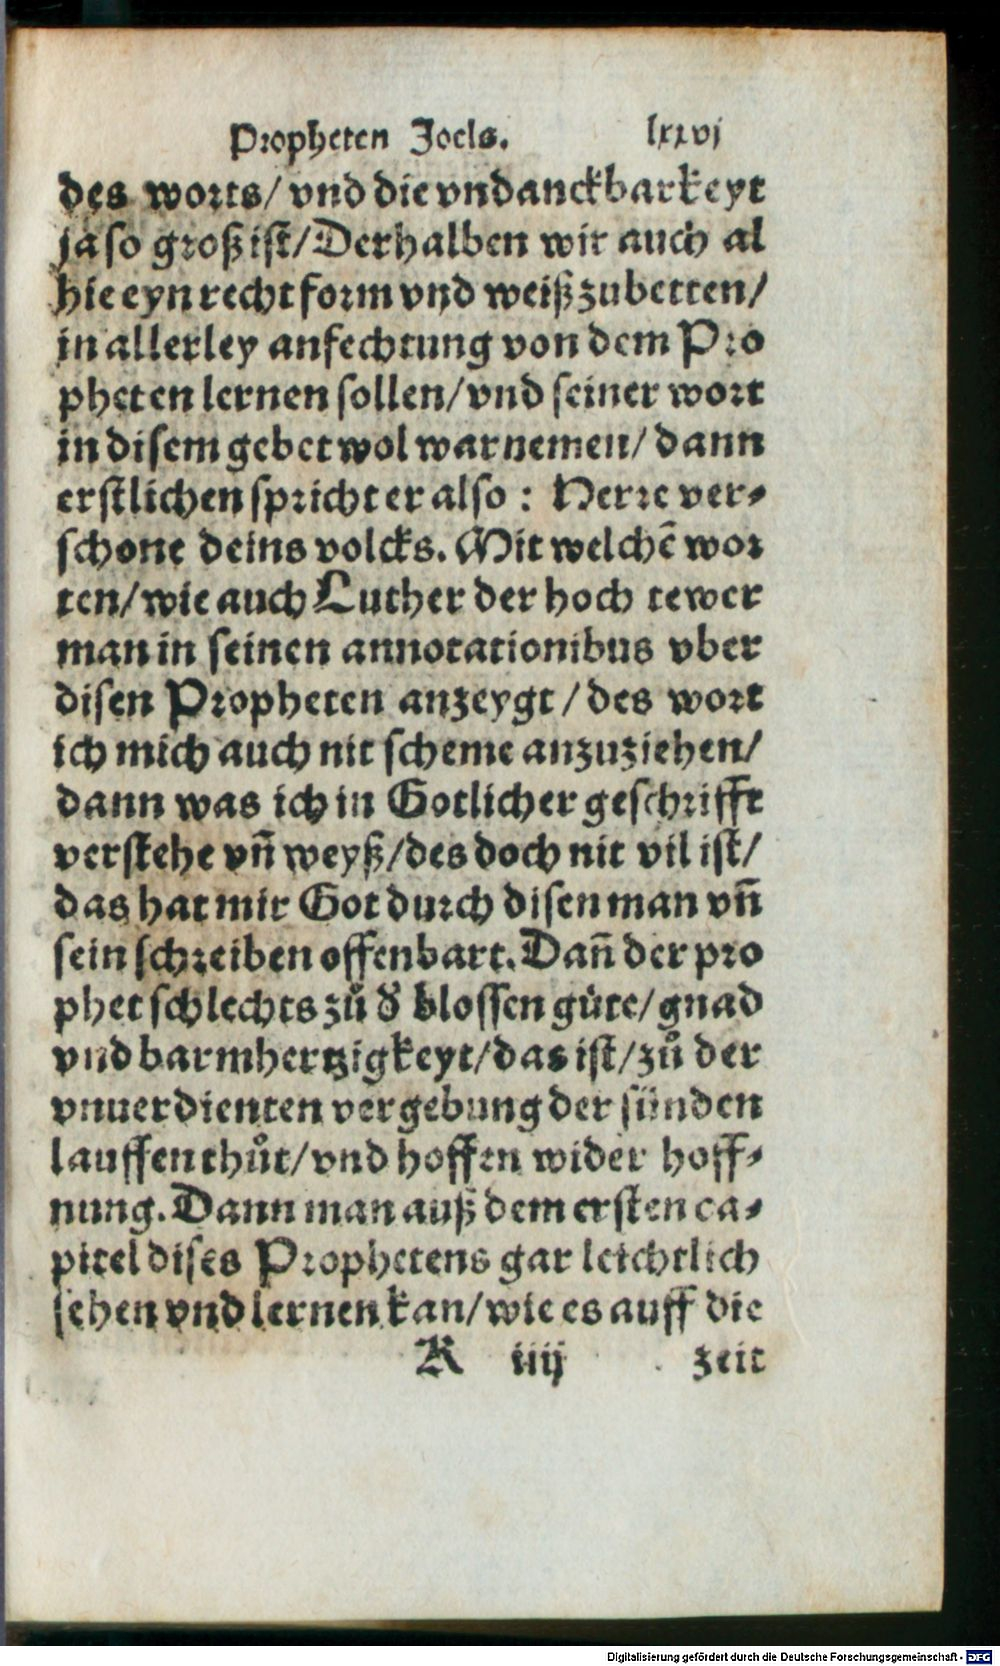 Propheten Joels. lxxvj
des worts/ vnd die vndanckbarkeyt
ja so groß ist/Derhalben wir auch al
hie eyn recht form vnd weiß zubetten/
in allerley anfechtung von dem Pro
pheten lernen sollen/vnd seiner wort
in disem gebet wol warnemen/ dann
erstlichen spricht er also : Herre ver⸗
schone deins volcks. Mit welchē wor
ten/wie auch Luther der hoch tewer
man in seinen annotationibus vber
disen Propheten anzeygt /des wort
ich mich auch nit scheme anzuziehen/
dann was ich in Gotlicher geschrifft
verstehe vñ weyß/des doch nit vil ist/
das hat mir Got durch disen man vñ
sein schreiben offenbart. Dañ der pro
phet schlechts zů d̕ blossen güte/gnad
vnd barmhertzigkeyt/das ist/zů der
vnuerdienten vergebung der sünden
lauffen thůt/vnd hoffen wider hoff⸗
nung. Dann man auß dem ersten ca⸗
pitel dises Prophetens gar leichtlich
sehen vnd lernen kan/wie es auff die
K iiij zeit
Digitalisierung gefördert durch die Deutsche Forschungsgemeinschaft - DFG